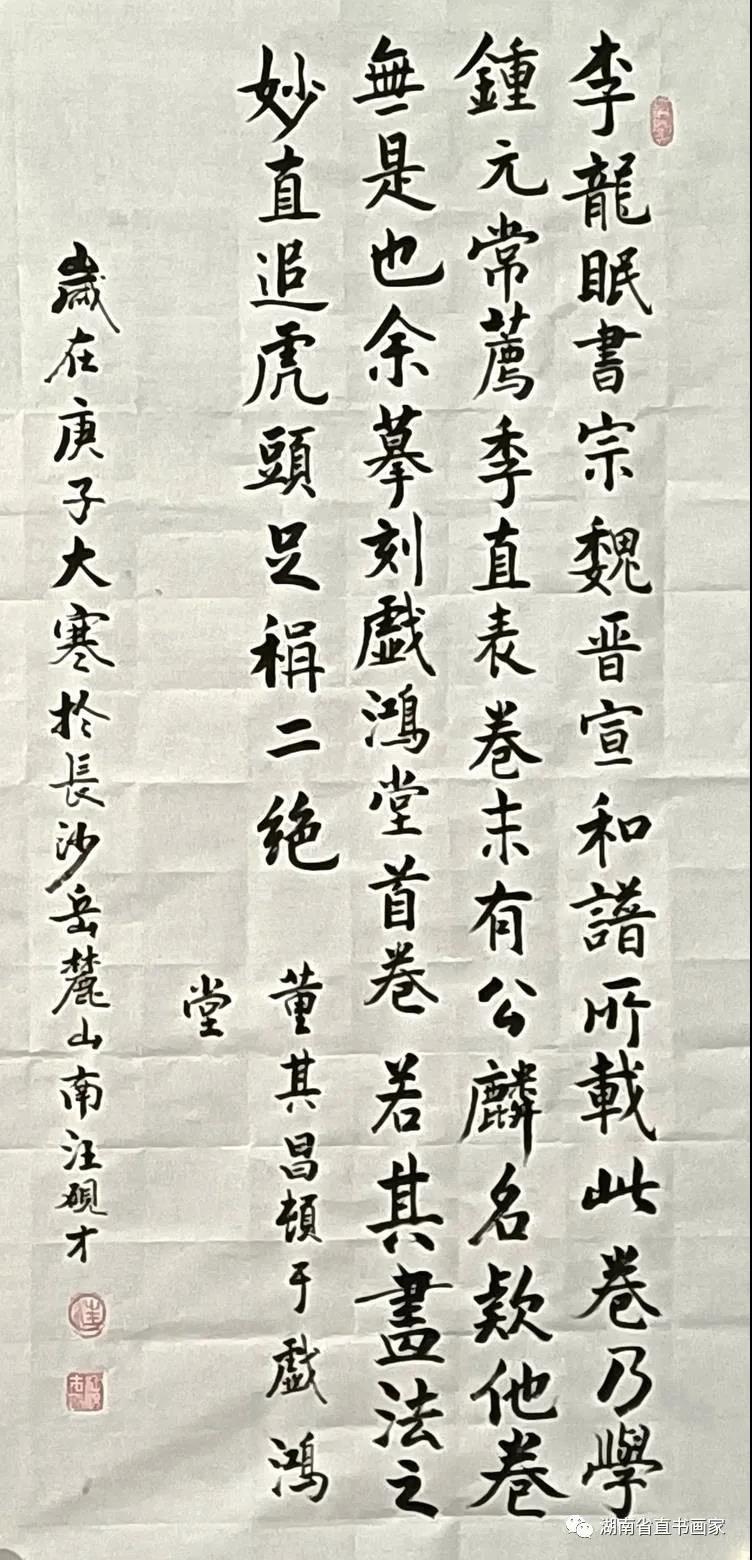 李龍眠書宗魏晋宣和譜所載此卷乃學
鍾元常薦季直表卷末有公麟名欵他卷
無是也余摹刻戲鴻堂首卷若其畫法之
妙直追虎頭足稱二絶
董其昌頓于戲鴻
堂
歲在庚子大寒於長沙岳麓山南汪硯才
湖南省直书画家